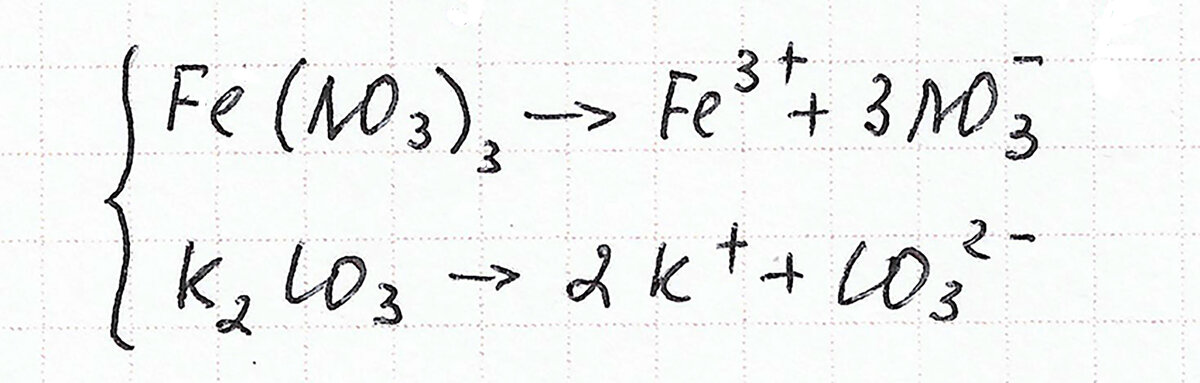 Fe(NO₃)₃ → Fe³⁺ + 3NO₃⁻
K₂CO₃ → 2K⁺ + CO₃²⁻